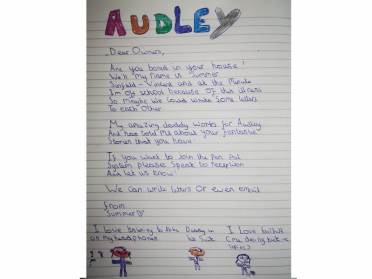 AUDLEY
Dear Owners,
Are you bored in your house!
Well my name is Summer
Sunfold - Vincent and at the minute
I'm of school because of this illness
So maybe we could write some letters
To each other
My amazing daddy works for Audley
And has told me about your fantastic
Stories that you have
If you want to join the Pen Pal
System please Speak to reception
And let us know!
We can write letters or even email
from
Summer
I love listening to
on my headphones
Daddy in
his Suit
I love ballet